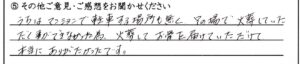 ⑤その他ご意見・ご感想をお聞かせください
うちはマンションで駐車する場所も無く、その場で火葬していた
だく事ができなかった為、火葬してお骨を届けていただけて
本当にありがたかったです。